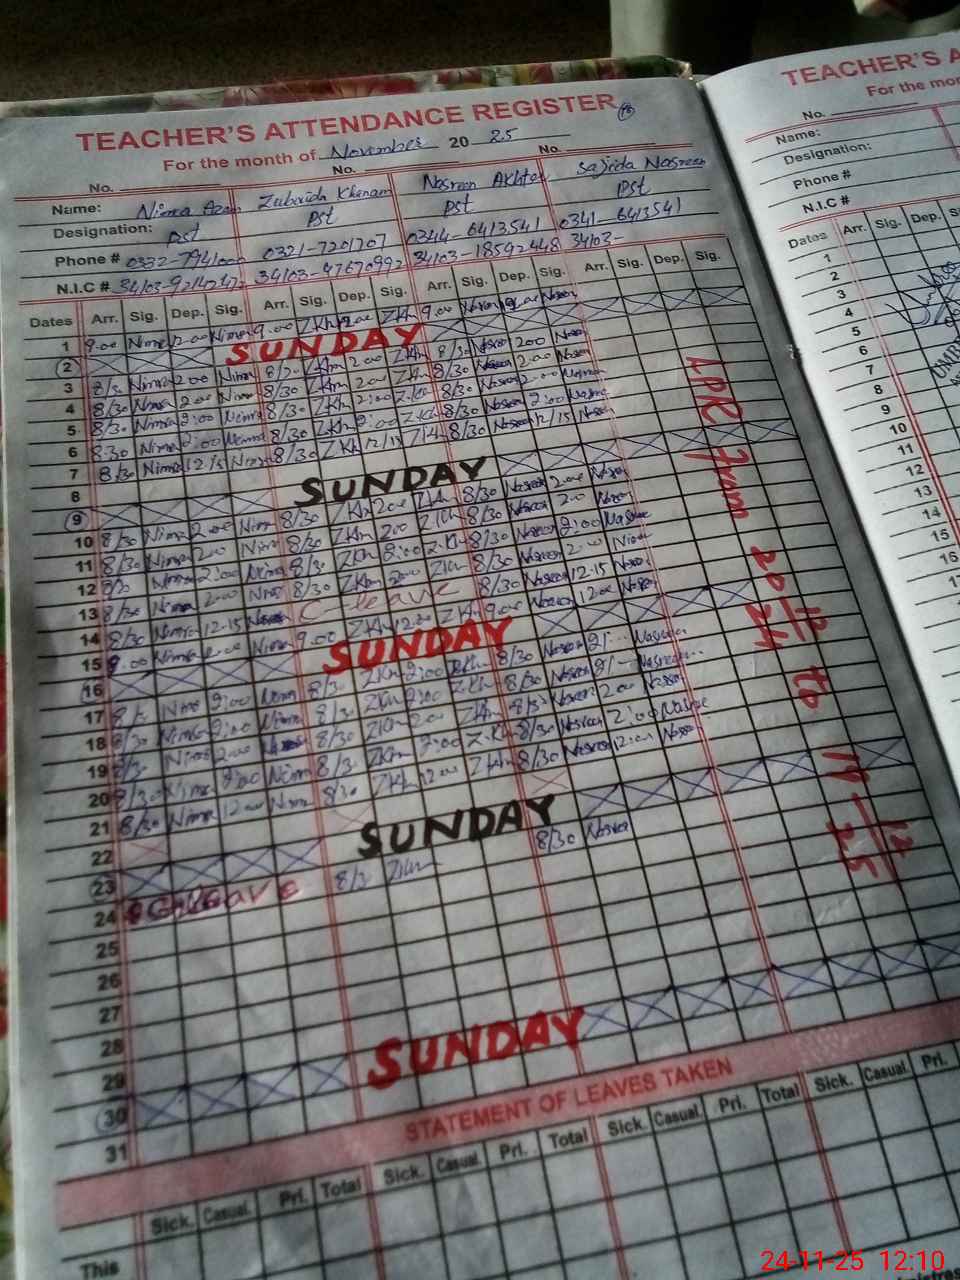 TEACHER'S ATTENDANCE REGISTER
For the month of November 20 25
No. No. No.
Name: Nimra Azam Zubaida Khanam Nasreen Akhter Sajida Nasreen
Designation: Pst Pst Pst Pst
Phone # 0332-7941000 0321-7201707 0344-6413541 0341-6413541
N.I.C # 34103-47670992 34103-18592448 34103-
Dates Arr. Sig. Dep. Sig. Arr. Sig. Dep. Sig. Arr. Sig. Dep. Sig. Arr. Sig. Dep. Sig.
1 9.00 Nimra 9.00 ZKh ZKh 9.00
2 SUNDAY
3 8/30 Nimra 2.00 Nimra 8/30 ZKh 2.00 ZKh 8/30 Nasreen 2.00 Nasreen
4 8/30 Nimra 2.00 Nimra 8/30 ZKh 2.00 ZKh 8/30 Nasreen 2.00 Nasreen
5 8/30 Nimra 2:00 Nimra 8/30 ZKh 2:00 ZKh 8/30 Nasreen 2.00 Nasreen
6 8:30 Nimra 2:00 Nimra 8/30 ZKh 2:00 ZKh 8/30 Nasreen 2:00 Nasreen
7 8/30 Nimra 12.15 Nimra 8/30 ZKh 12/15 ZKh 8/30 Nasreen 12/15 Nasreen
8
9 SUNDAY
10 8/30 Nimra 2.00 Nimra 8/30 ZKh 2.00 ZKh 8/30 Nasreen 2.00 Nasreen
11 8/30 Nimra 2.00 Nimra 8/30 ZKh 2.00 ZKh 8/30 Nasreen 2.00 Nasreen
12 Nimra 2:00 Nimra 8/30 ZKh 2:00 Z.Kh 8/30 Nasreen 2:00 Nasreen
13 8/30 Nimra 2.00 Nimra 8/30 ZKh 2.00 ZKh 8/30 Nasreen 2.00
14 8/30 Nimra 12.15 C-leave 8/30 Nasreen 12.15 Nasreen
15 9.00 Nimra Nimra 9.00 ZKh 12.00 ZKh 9.00 Nasreen 12.00 Nasreen
16 SUNDAY
17 8/30 Nimra 2:00 Nimra 8/30 ZKh 2:00 ZKh 8/30 Nasreen
18 8/30 Nimra 2:00 Nimra 8/30 ZKh 2:00 ZKh 8/30 Nasreen
19 8/30 Nimra 2.00 8/30 ZKh 2.00 ZKh 8/30 Nasreen 2.00 Nasreen
20 8/30 Nimra 2:00 Nimra 8/30 ZKh 2:00 Z.Kh 8/30 Nasreen 2:00 Nasreen
21 8/30 Nimra 12.00 Nimra 8/30 ZKh 12.00 ZKh 8/30 Nasreen 12:00 Nasreen
22
23 SUNDAY
24 leave 8/30 ZKh 8/30 Nasreen
25
26
27
28
29
30 SUNDAY
31
LPR from 20-12-24 to 19-12-25
STATEMENT OF LEAVES TAKEN
Sick. Casual. Pri. Total Sick. Casual. Pri. Total Sick. Casual. Pri. Total Sick. Casual. Pri.
This
TEACHER'S A
For the mon
No.
Name:
Designation:
Phone #
N.I.C #
Dates Arr. Sig. Dep. Sig.
1
2
3
4
5
6
7
8
9
10
11
12
13
14
15
16
17
24-11-25 12:10